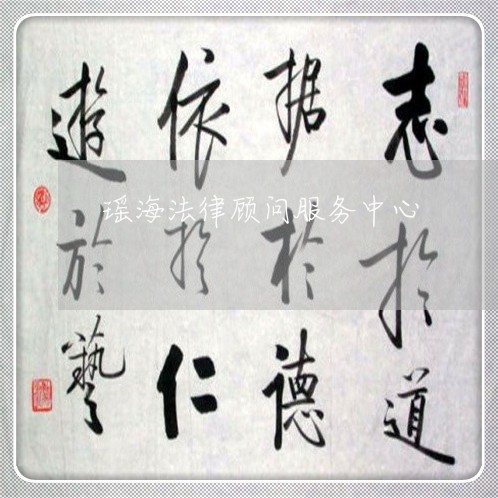 志於道
据於德
依於仁
遊於藝
瑶海法律顾问服务中心